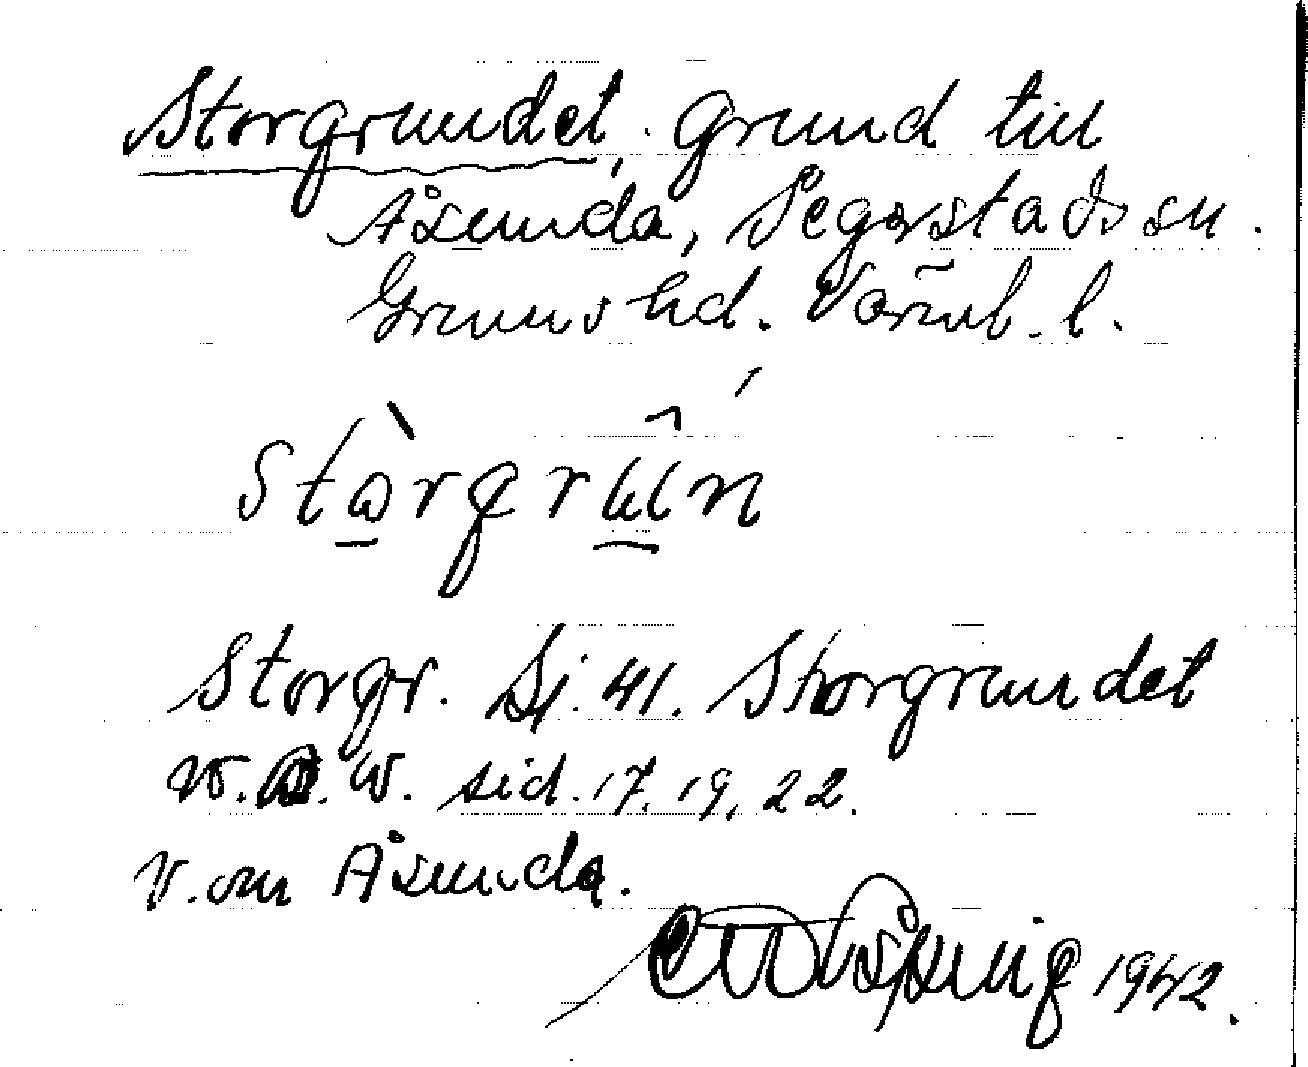 Storgrundet, grund till
Åsunda, Segerstads sn.
Grums hd. Värml. l.
stòrgrún
Storgr. Sj. 41. Storgrundet
W. W. sid. 17, 19, 22.
V. om Åsunda.
1942.